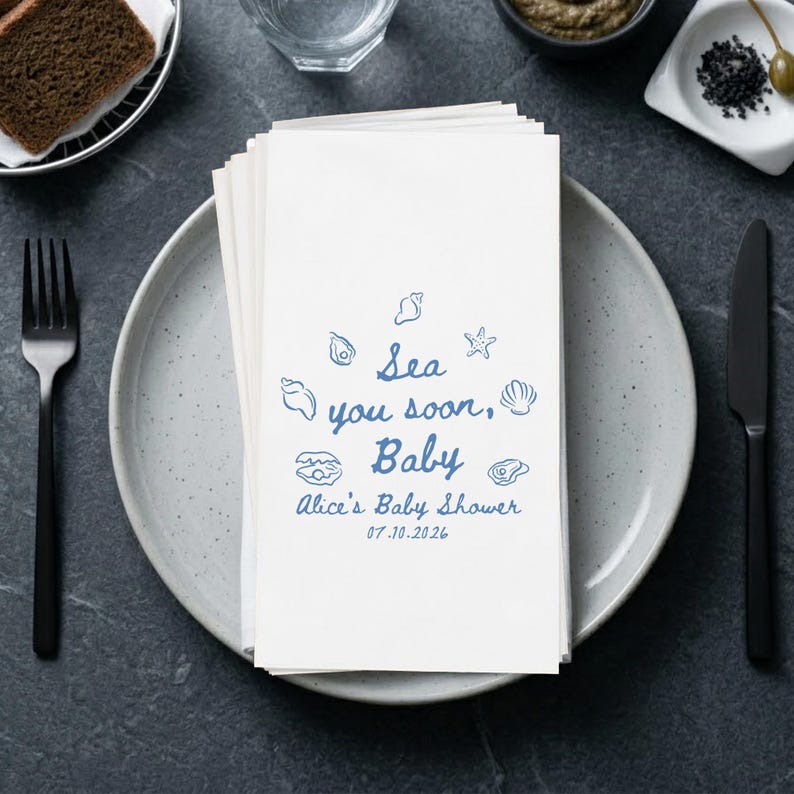 Sea
you soon,
Baby
Alice's Baby Shower
07.10.2026